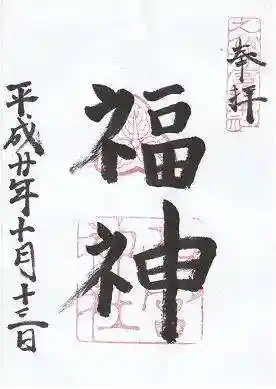 奉拝
福神
平成廿年十月十三日